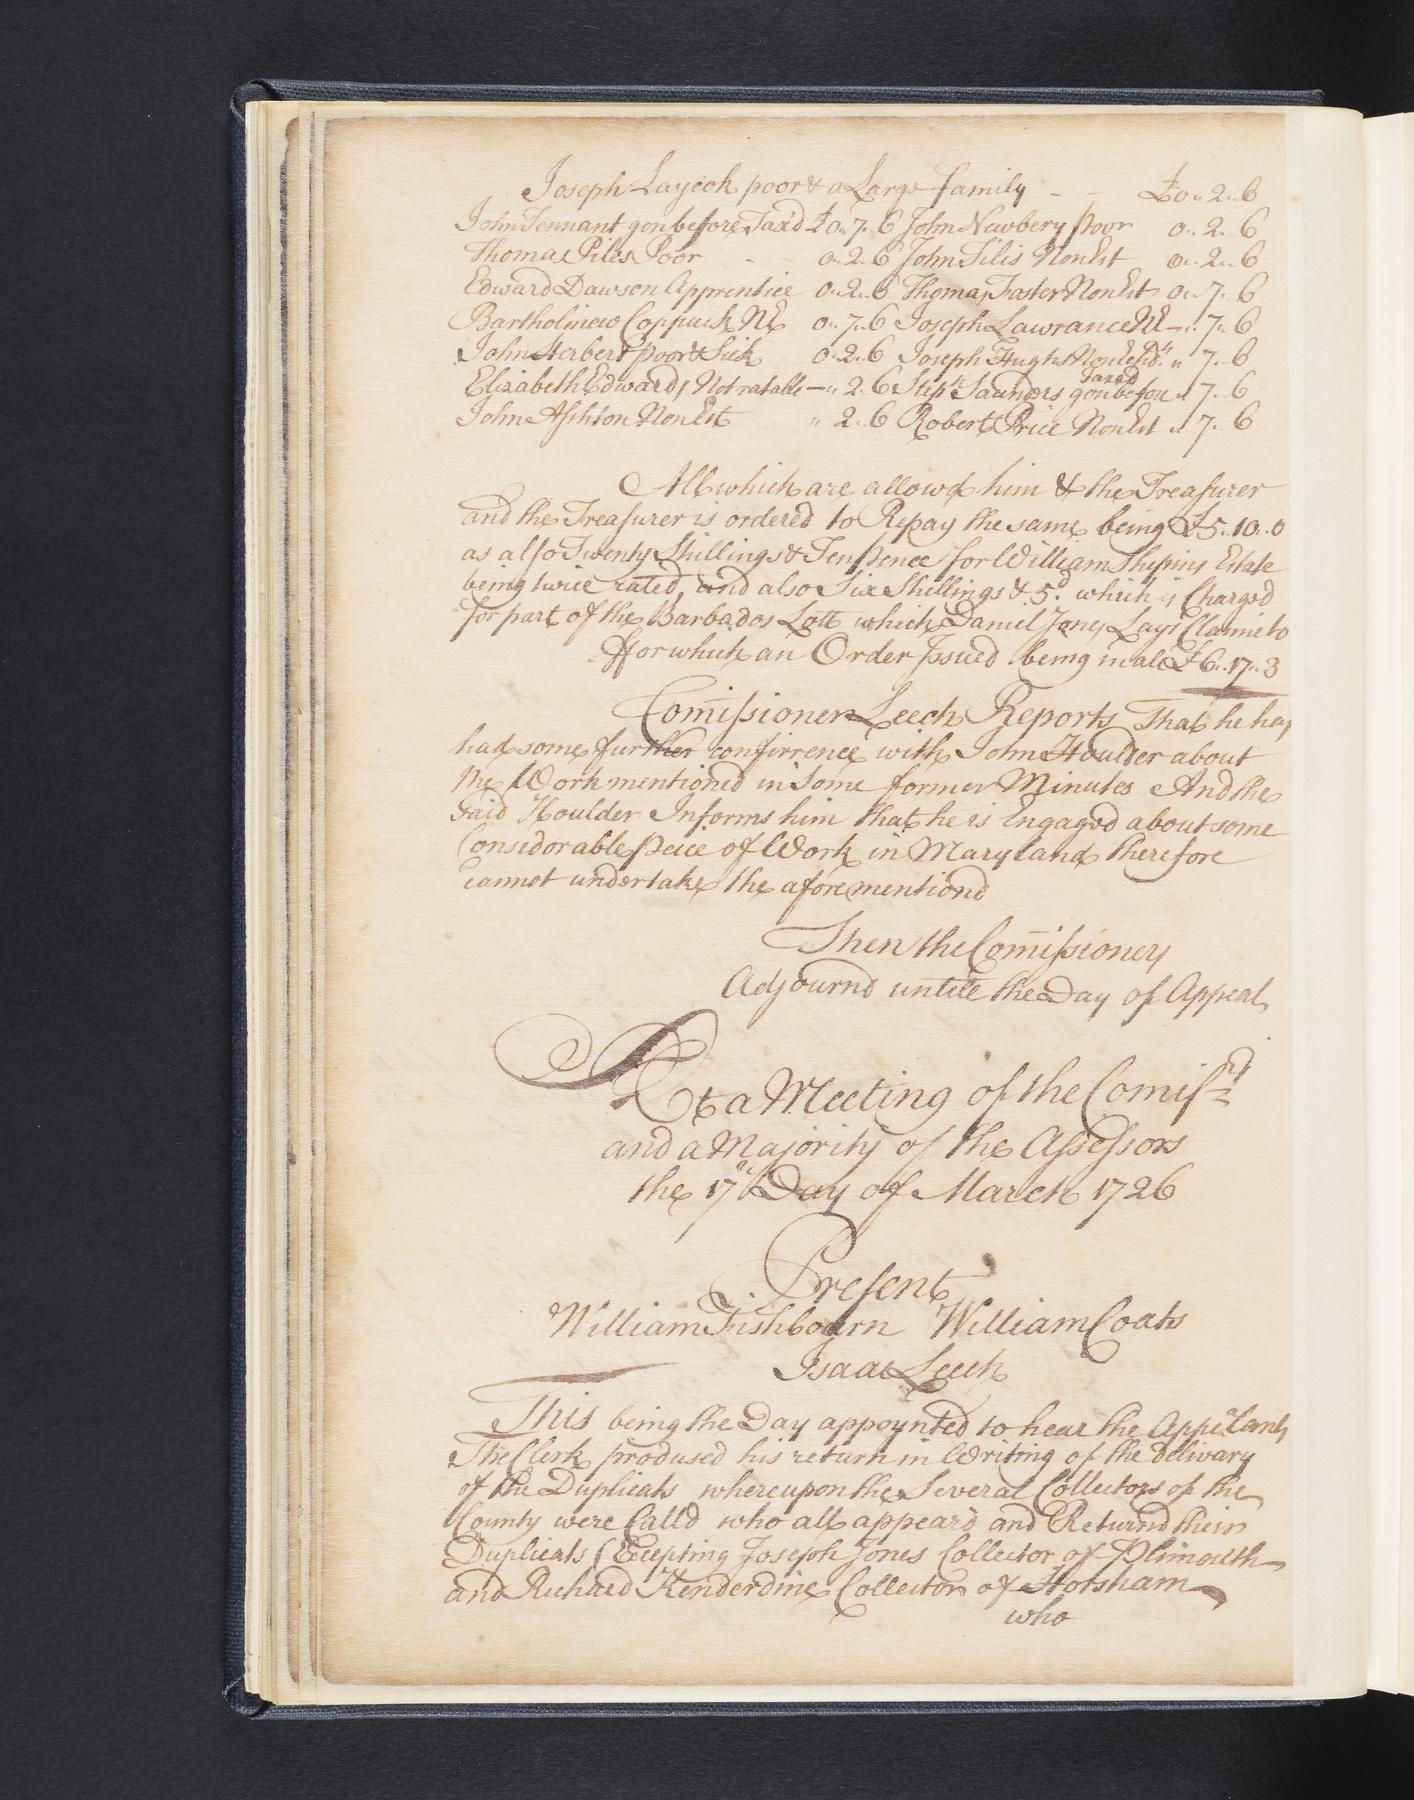 Joseph Laycok poor & a Large family - - £0..2..6
John Tennant gon before Tax'd £0..7..6 John Newbery poor 0..2..6
Thomas Piles Poor - - 0..2..6 John Filis Non Est 0..2..6
Edward Dawson Apprentice 0..2..6 Thomas Foster Non Est 0..7..6
Bartholinew Coppuck NE 0..7..6 Joseph Lawrance NE - „ 7..6
John Herbert poor & Sick 0..2..6 Joseph Hughs Non Est „ 7..6
Elizabeth Edwards Not ratable — „ 2..6 Step:n Saunders gon before Taxed „ 7..6
John Ashton Non Est „ 2..6 Robert Price Non Est „ 7..6
All which are allowd him & the Treasurer
and the Treasurer is ordered to Repay the same being £5..10..0
as also Twenty Shillings & Ten pence for William Shipins Estate
being twice rated, and also Six Shillings & 5d. which is Charged
for part of the Barbados Lott which Daniel Jones Lays Claime to
ffor which an Order Issued being in all £6..17..3
Comissioner Leech Reports That he has
had some further confirrence with John Houlder about
the Work mentioned in Some former Minutes And the
said Houlder Informs him that he is Engaged about some
Considorable peice of Work in Maryland therefore
cannot undertake the aforementiond
Then the Comissioners
Adjournd untill the Day of Appeal
At a Meeting of the Comiss:rs
and a Majority of the Assessors
the 17th Day of March 1726
Present
William Fishbourn William Coats
Isaac Leech
This being the Day appoynted to hear the Appelants
The Clerk prodused his return in Writing of the Delivary
of the Duplicats whereupon the Several Collectors of the
County were Calld who all appeard and Returnd their
Duplicats (Excepting Joseph Jones Collector of Plimouth
and Richard Kenderdine Collector of Horsham
who